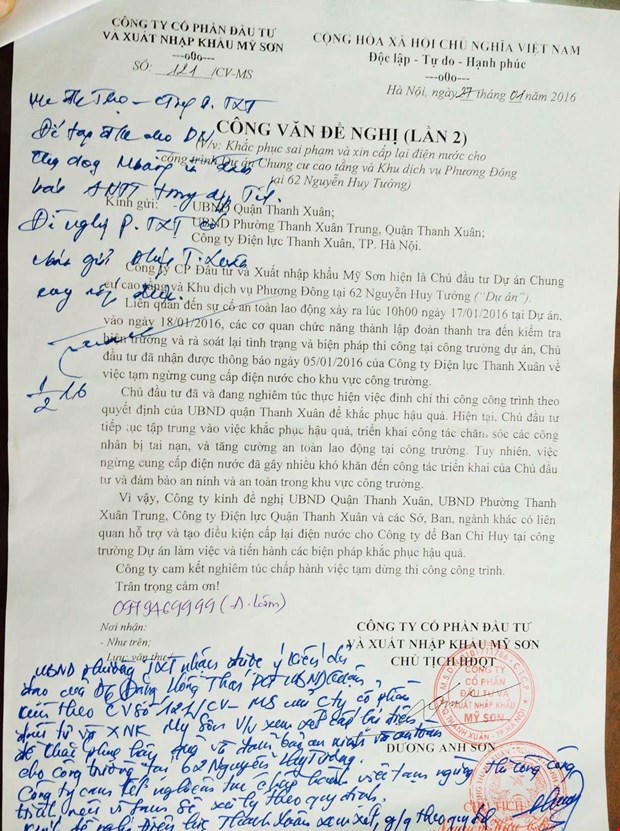 CÔNG TY CỔ PHẦN ĐẦU TƯ
VÀ XUẤT NHẬP KHẨU MỸ SƠN
---o0o---
SỐ: 121 /CV-MS
CỘNG HÒA XÃ HỘI CHỦ NGHĨA VIỆT NAM
Độc lập - Tự do - Hạnh phúc
---o0o---
Hà Nội, ngày 27 tháng 01 năm 2016
CÔNG VĂN ĐỀ NGHỊ (LẦN 2)
(V/v: Khắc phục sai phạm và xin cấp lại điện nước cho
công trình Dự án Chung cư cao tầng và Khu dịch vụ Phương Đông
tại 62 Nguyễn Huy Tưởng)
Kính gửi: - UBND Quận Thanh Xuân;
UBND Phường Thanh Xuân Trung, Quận Thanh Xuân;
Công ty Điện lực Thanh Xuân, TP. Hà Nội.
Đề nghị P. TXT
Công ty CP Đầu tư và Xuất nhập khẩu Mỹ Sơn hiện là Chủ đầu tư Dự án Chung
cư cao tầng và Khu dịch vụ Phương Đông tại 62 Nguyễn Huy Tưởng ("Dự án").
Liên quan đến sự cố an toàn lao động xảy ra lúc 10h00 ngày 17/01/2016 tại Dự án,
vào ngày 18/01/2016, các cơ quan chức năng thành lập đoàn thanh tra đến kiểm tra
hiện trường và rà soát lại tình trạng và biện pháp thi công tại công trường dự án, Chủ
đầu tư đã nhận được thông báo ngày 05/01/2016 của Công ty Điện lực Thanh Xuân về
việc tạm ngừng cung cấp điện nước cho khu vực công trường.
1/2 16
Chủ đầu tư đã và đang nghiêm túc thực hiện việc đình chỉ thi công công trình theo
quyết định của UBND quận Thanh Xuân để khắc phục hậu quả. Hiện tại, Chủ đầu tư
tiếp tục tập trung vào việc khắc phục hậu quả, triển khai công tác chăm sóc các công
nhân bị tai nạn, và tăng cường an toàn lao động tại công trường. Tuy nhiên, việc
ngừng cung cấp điện nước đã gây nhiều khó khăn đến công tác triển khai của Chủ đầu
tư và đảm bảo an ninh và an toàn trong khu vực công trường.
Vì vậy, Công ty kính đề nghị UBND Quận Thanh Xuân, UBND Phường Thanh
Xuân Trung, Công ty Điện lực Quận Thanh Xuân và các Sở, Ban, ngành khác có liên
quan hỗ trợ và tạo điều kiện cấp lại điện nước cho Công ty để Ban Chỉ Huy tại công
trường Dự án làm việc và tiến hành các biện pháp khắc phục hậu quả.
Công ty cam kết nghiêm túc chấp hành việc tạm dừng thi công công trình.
Trân trọng cảm ơn!
0979469999 (A. Lâm)
Nơi nhận:
- Như trên;
- Lưu: văn thư
CÔNG TY CỔ PHẦN ĐẦU TƯ
VÀ XUẤT NHẬP KHẨU MỸ SƠN
CHỦ TỊCH HĐQT
CÔNG TY
CỔ PHẦN
ĐẦU TƯ VÀ
XUẤT NHẬP KHẨU
MỸ SƠN
DƯƠNG ANH SƠN
UBND phường TXT nhận được ý kiến chỉ
đạo của Đ/c Đặng Hồng Thái PCT UBND Quận
kèm theo CV số 121/CV-MS của Cty cổ phần
đầu tư và XNK Mỹ Sơn V/v xem xét cấp lại điện
để khắc phục hậu quả và đảm bảo an ninh và an toàn
cho công trường tại 62 Nguyễn Huy Tưởng.
Công ty cam kết nghiêm túc chấp hành việc tạm ngừng thi công công
trình nếu vi phạm sẽ xử lý theo quy định.
Kính đề nghị Điện lực Thanh Xuân xem xét, g/q theo quy định
CHỦ TỊCH